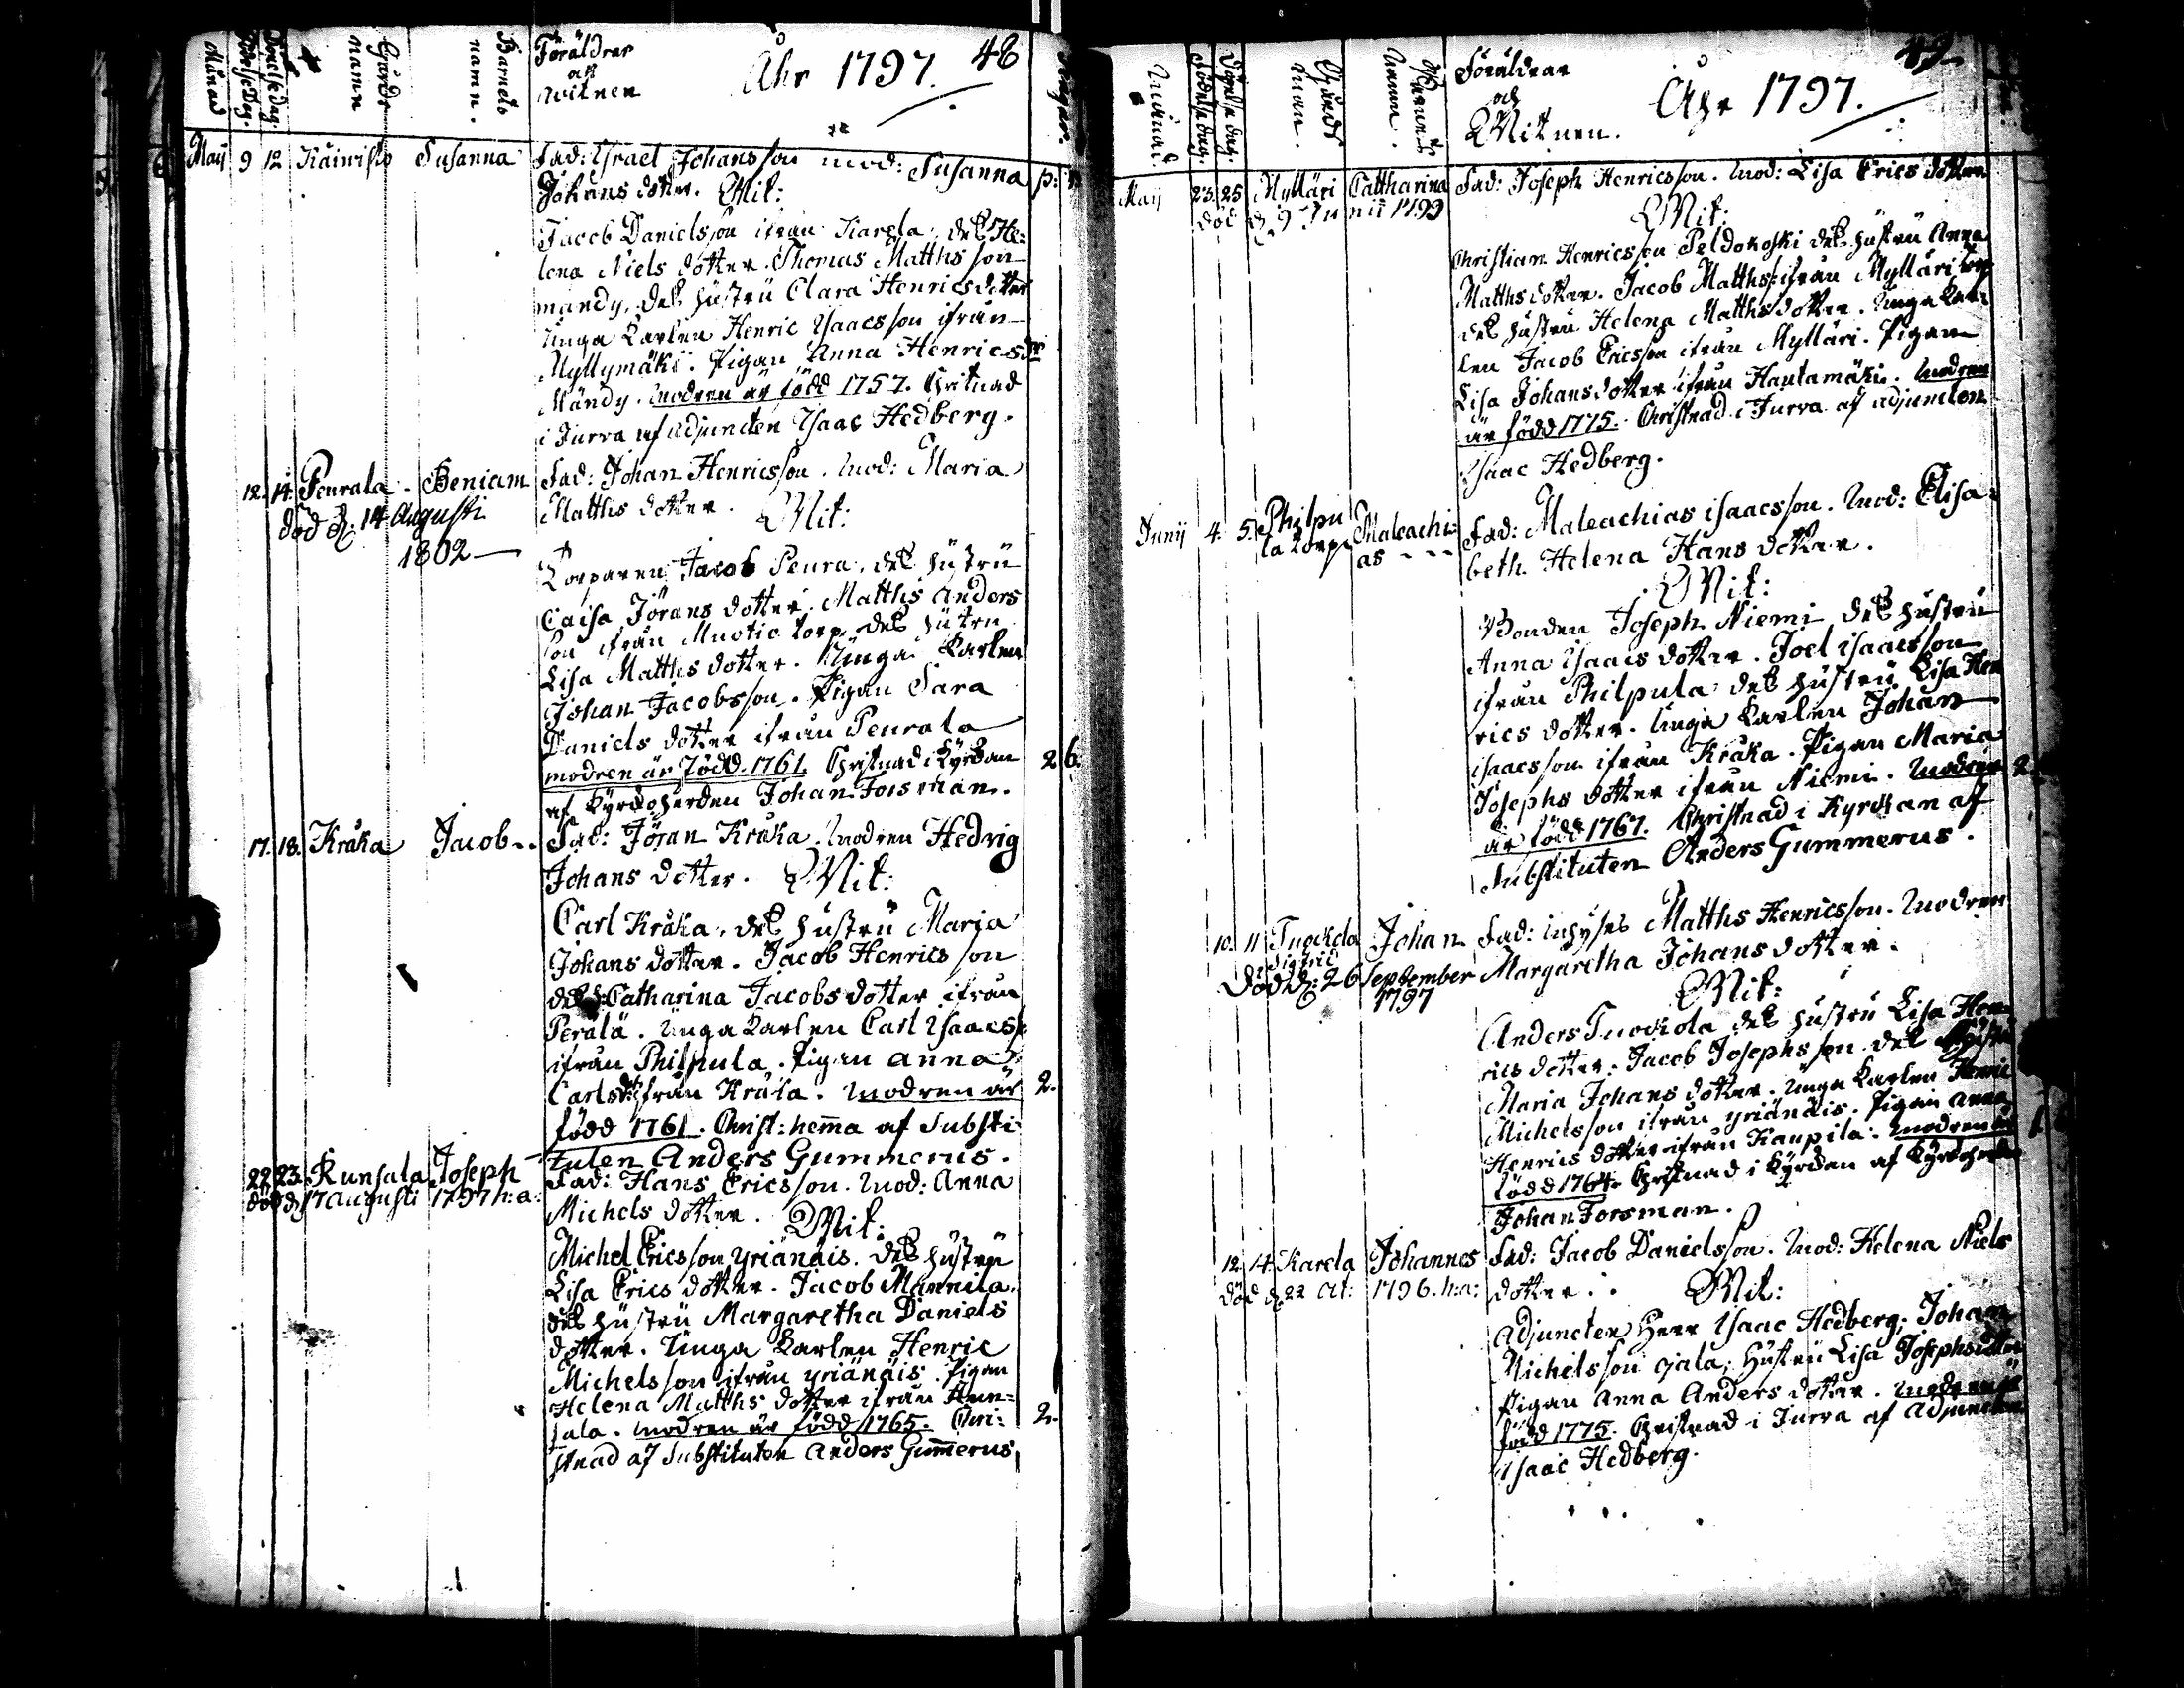 Månad
Födelse Dag.
Döpelse dag.
Gårds namn
Barnets namn.
Föräldrar
och
witnen
Åhr 1797.
48
May 9 12 Käiwisto Susanna Fad: Israel Johansson mod: Susanna
Johans dotter. Wit:
Jacob Danielsson ifrån Karela, des He=
lena Niels dotter. Thomas Matthsson
mandy, des hustru Clara Henricsdotter
Unga Karlen Henric Isaacsson ifrån
Myllymäki. Pigan Anna Henricsdr
Mändy. modren är född 1757. Christnad
i Jurva af adjuncten Isaac Hedberg.
12. 14. Peurala. Beniam Fad: Johan Henricsson. mod: Maria
död d: 14 Augusti Matths dotter. Wit:
1802
Torparen Jacob Peura, des hustru
Caisa Jörans dotter. Matths Anders
son ifrån Muotio torp, des hustru
Lisa Matths dotter. Unga Karlen
Johan Jacobsson. Pigan Sara
Daniels dotter ifrån Peurala
modren är född. 1761. Christnad i Kyrckan 2 6.
af Kyrckoherden Johan Forsman.
17. 18. Kråka Jacob.. Fad: Jöran Kråka. modren Hedvig
Johans dotter. Wit:
Carl Kråka, des hustru Maria
Johans dotter. Jacob Henricsson
des h: Catharina Jacobs dotter ifrån
Perälä. Unga Karlen Carl Isaacss:
ifrån Philpula. Pigan anna
Carlsdr: ifrån Kråka. modren är 2.
född 1761. Christ: hema af Substi
tuten Anders Gummerus.
22 23. Kunsala Joseph Fad: Hans Ericsson. mod: Anna
död d: 17 augusti 1797 h:a: Michels dotter. Wit:
Michel Ericsson yrjänäis. des hustru
Lisa Erics dotter. Jacob Mannila,
des hustru Margaretha Daniels
dotter. Unga Karlen Henric
Michelsson ifrån yrjänäis. Pigan
Helena Matths dotter ifrån Kun=
sala. modren är född 1765. Chri: 2.
stnad af Substituten Anders Gummerus
Månad.
Födelse dag.
Döpelse dag.
Gårds Nam.
Barnets Namn.
Föräldrar
och
Witnen.
Åhr 1797.
49
May 23. 25 Mylläri Cattharina Fad: Joseph Henricsson. mod: Lisa Erics dotter
död d. 9 Junii 1799
Wit:
Christian Henricsson Peldokoski des hustru Anna
Matths dotter. Jacob Matthss: ifrån Mylläri torp
des hustru Helena Matths dotter. Unga Kar=
len Jacob Ericsson ifrån Mylläri. Pigan
Lisa Johans dotter ifrån Hautamäki. modren
är född 1775. Christnad i Jurva af adjuncten
Isaac Hedberg.
Junij 4. 5. Philpu Maleachi= Fad: Maleachias isaacsson. mod: Elisa=
la torp. as --- beth Helena Hans dotter.
Wit:
Bonden Joseph Niemi des hustru
Anna Isaacs dotter. Joel isaacsson
ifrån Philpula: des hustru Lisa Hen
rics dotter. Unga Karlen Johan
isaacsson ifrån Kråka. Pigan Maria
Josephs dotter ifrån Niemi. modren 2.
är född 1767. Christnad i Kyrckan af
Substituten Anders Gummerus.
10. 11 Tuockola Johan Fad: inhyses Matths Henricsson. modren
Sigfrid
död d: 26 September Margaretha Johans dotter.
1797
Wit:
Anders Tuockola des hustru Lisa Hen=
rics dotter. Jacob Josephsson des hustru
Maria Johans dotter. Unga Karlen Henric
Michelsson ifrån yrjänäis. Pigan Anna
Henrics dotter ifrån Kaupila. modren är
född 1764. Christnad i Kyrckan af Kyrckoherden
Johan Forsman.
12. 14. Karela Johannes Fad: Jacob Danielsson. mod: Helena Niels
död d. 22 1796. h:a: dotter. Wit:
Adjuncten Herr Isaac Hedberg, Johan
Michelsson ojala, Hustru Lisa Josephsdotter
Pigan Anna Anders dotter. modren är
född 1775. Christnad i Jurva af Adjuncten
Isaac Hedberg.